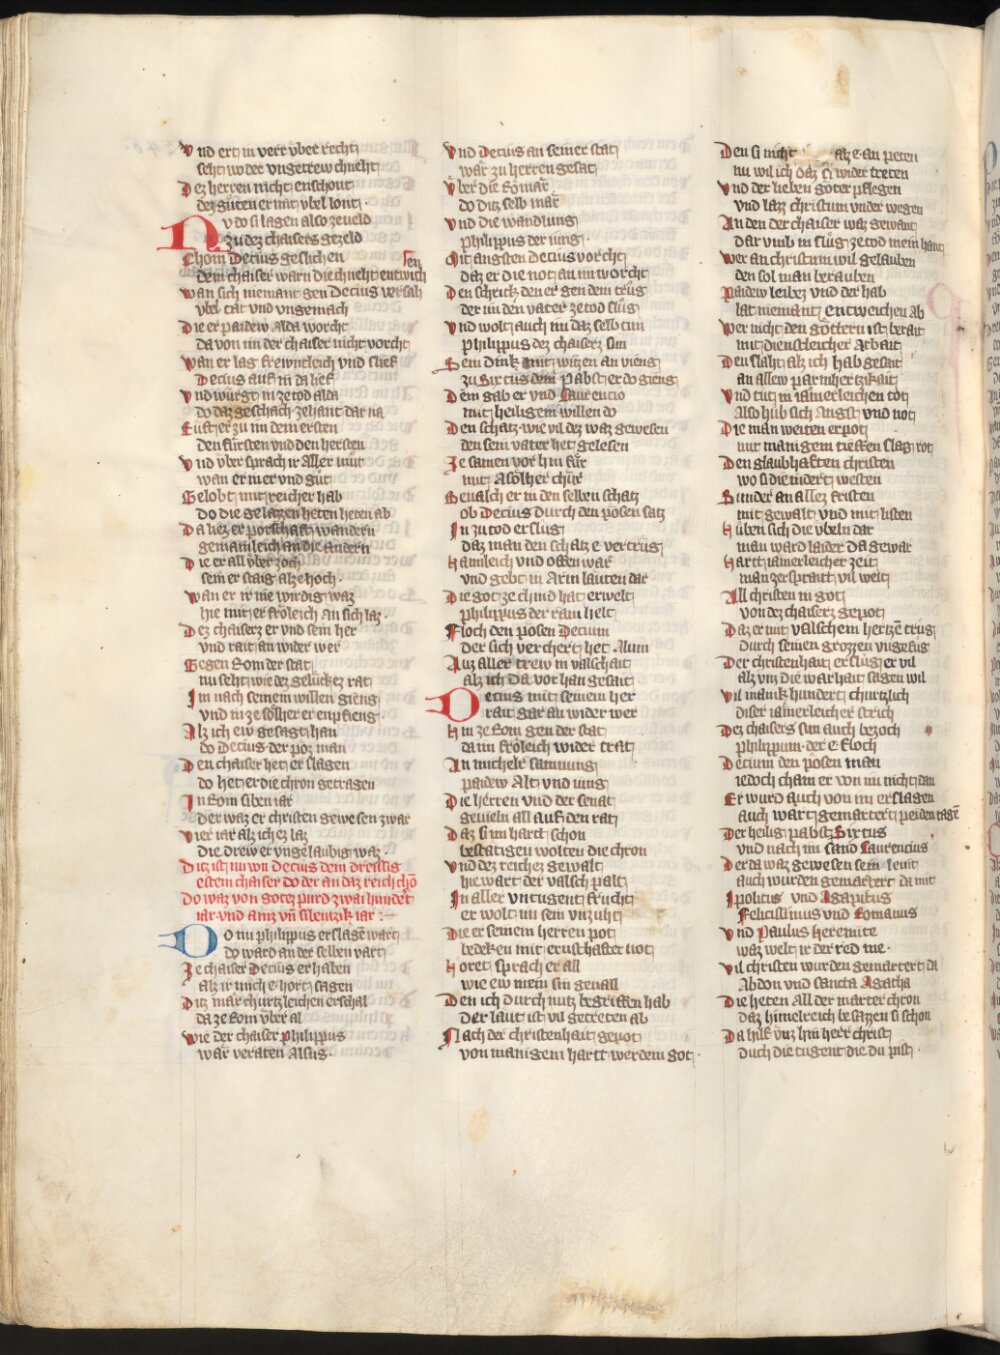 Vnd ert in verr vber recht
seht wo der vngetrew chneht
Dez herren nicht enschont
dez guten er mit vbel lont
Nv do si lagen also ze veld
Zu dez chaisers gezeld
Chom Decius geslichen
dem chaiser warn die chneht entwichsen
Wan sich niemant gen Decius versah
vbel tat vnd vngemach
Die er paidew alda worcht
da von im der chaiser nicht vorcht
Wan er lag frewntleich vnd slief
Decius auf in da lief
Vnd wurgt in ze tod alda
do daz geschach zehant dar na
Fust er zu im dem ersten
den fursten vnd den hersten
Vnd vber sprach ir aller mut
wan er in er vnd gut
Gelobt mit reicher hab
do die gelazzen heten heten ab
Da liez er porschaft wandern
gemainleich an die andern
Die er all vber zoch
sein er staig alze hoch
Wan er ir nie wirdig waz
hie mit er froleich an sich laz
Dez chaiserz er vnd sein her
vnd rait an wider wer
Gegen Rom der stat
nu seht wie dez geluckez rat
Im nach seinem willen gieng
vnd in ze solher er enpfieng
Alz ich ew gesagt han
do Decius der poz man
Den chaiser het er slagen
do het er die chron getragen
In Rom siben iar
der waz er christen gewesen zwar
Vier iar alz ich ez laz
die drew er vngelaubig waz
Ditz ist nu von Decius dem dreissig
estem chaiser do der an daz reich chō
Do waz von gotez purd zwai hundert
iar vnd ainz vn sibentzik iar
Do nu philippus erslagē wart
do ward an der selben vart
Ze chaiser Decius erhaben
alz ir mich e hort sagen
Ditz mar churtzleichen erschal
da ze Rom vber al
Wie der chaiser philippus
war veraten alsus
Vnd Decius an seiner stat
war zu herren gesat
Vber die Romar
do ditz selb mar
Vnd die wandlung
philippus der iung
Mit angsten Decius vorcht
daz er die not an im worcht
Den schrick den er gen dem trug
der im den vater ze tod slug
Vnd wolt auch im daz selb tun
philippus dez chaiserz sun
Sein dink mit witzen an vieng
zu Sixtus dem Pabst er do gieng
Dem gab er vnd Laurencio
mit heiligem willen do
Den schatz wie vil dez waz gewesen
den sein vater het gelesen
Ze samen vor hin fur
mit asolher chur
Beualch er in den selben schatz
ob Decius durch den posen satz
In zu tod erslug
daz man den schatz e vertrug
Hamleich vnd offenwar
vnd gebt in Arm lauten dar
Die got ze chind hat erwelt
philippus der rain helt
Floch den posen Decium
der sich verchert het Alum
Auz aller trew in valschait
alz ich da vor han gesait
Decius mit seinem her
rait gar an wider wer
Hin ze Rom gen der stat
da im froleich wider trat
An michelr samnung
paidew Alt vnd iung
Die herren vnd der senat
geuieln all auf den rat
Daz si im hartt schon
bestatigen wolten die chron
Vnd dez reichez gewalt
hie wart der valsch palt
In aller vntugent frucht
er wolt im sein vnzuht
Die er seinem herren pot
bedekken mit ernschafter not
Horet sprach er all
wie ew mein sin geuall
Den ich durch nutz begriffen hab
der laut ist vil getreten ab
Nach der christenhait gepot
von manigem hartt werdem got
Den si nicht alz e an peten
nu wil ich daz si wider treten
Vnd der lieben goter pflegen
vnd lazz christum vnder wegen
An den der chaiser waz gewant
dar vmb in slug ze tod mein hant
Wer an christum wil gelauben
den sol man berauben
Paidew leibez vnd der hab
lat niemant entweichen ab
Wer nicht den gottern ist betait
mit dienstleicher Arbait
Den slaht alz ich hab gesait
an allew parmhertzikait
Vnd tut in iamerleichen tot
Also hub sich Angst vnd not
Die man weiten erpot
mit manigem tieffen slag rot
Den glaubhaften christen
wo si die indert westen
Sunder an allez fristen
mit gewalt vnd mit listen
Huben sich die vbeln dar
man ward laider da gewar
Hartt iamerleicher zeit
man zerspraitt vil weit
All christen in got
von dez chaiserz gepot
Daz er mit valschem hertzē trug
durch seinen grozzen vngefug
Der christenhait erslug er vil
alz vnz die warhait sagen wil
Vil manik hundert churtzlich
diser iamerleicher strich
Dez chaisers sun auch bezoch
philippum der e floch
Decium den posen man
iedoch cham er von im nicht dan
Er wurd auch von im erslagen
auch wart gemartert pei den tagē
Der heilig pabst Sixtus
vnd nach im sand Laurencius
Der da waz gewesen sein leuit
auch wurden gemartert da mit
Ipolitus vnd Agapitus
Felicissimus vnd Romanus
Vnd Paulus heremite
waz welt ir der red me
Vil christen wurden gemartert da
Abdon vnd sancta Agatha
Die heten all der marter chron
daz himelreich besazzen si schon
Da hilf vnz hin herr christ
duch die tugent die du pist